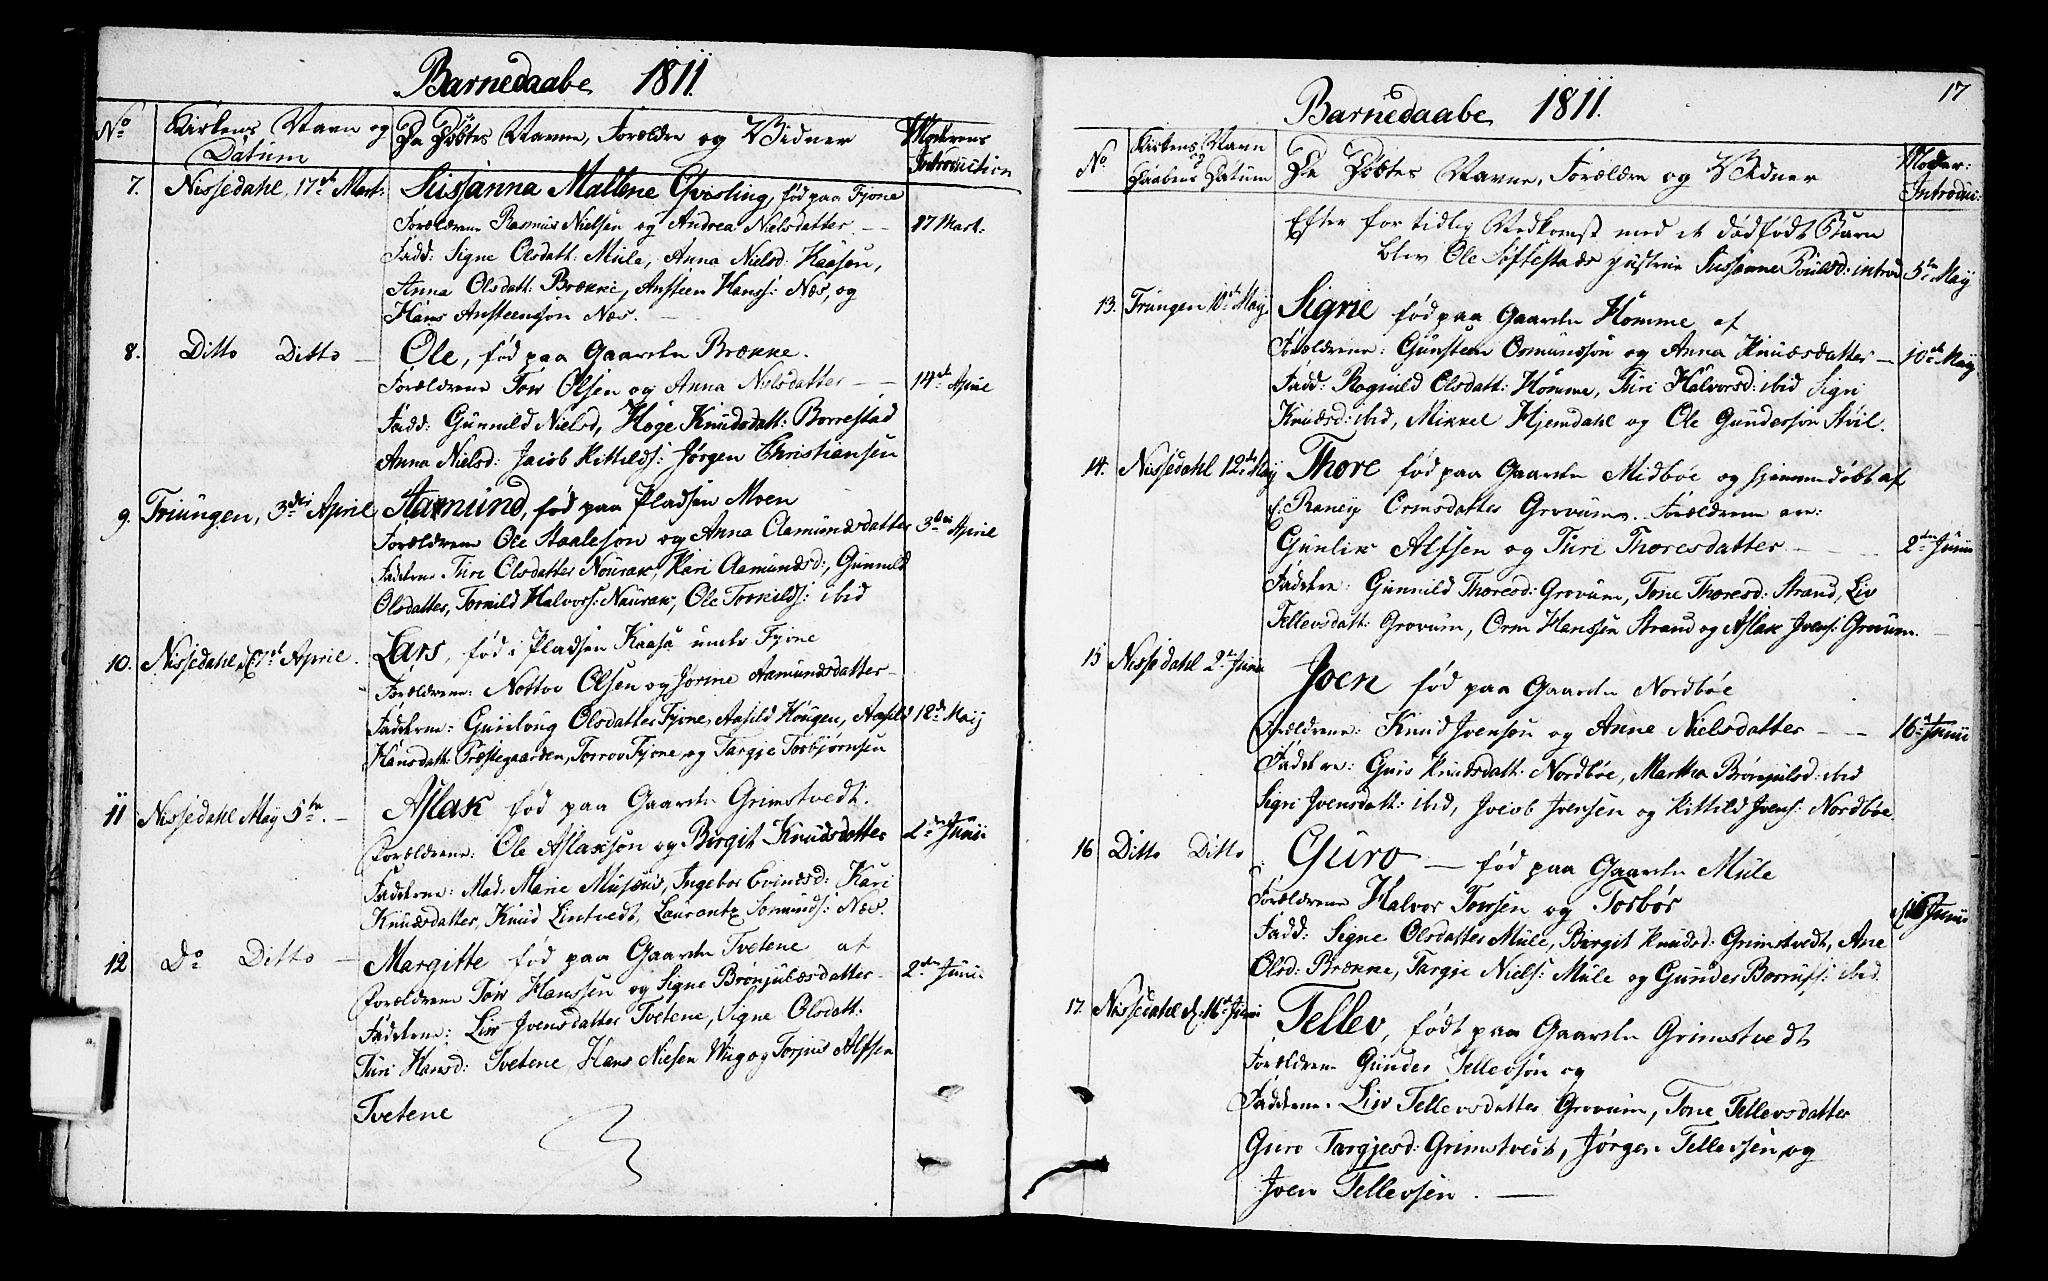 Barnedaabe 1811.
No Kirkens Navn og Datum De Döbtes Navne, Forældre og Vidner Modrens Introduction
7. Nissedahl, 17de Mart: Sussanna Maltene Qvisling, fød paa Fjone
Forældrene Rasmus Nielsen og Andrea Nielsdatter 17 Mart:
Fadd: Signe Olsdatt: Mule, Anna Nielsd: Haasen,
Anna Olsdatt: Brække, Ansteen Hanss: Næs, og
Hans Ansteensøn Næs.
8. Ditto Ditto Ole, fød paa Gaarden Brække.
Forældrene Tow Olsen og Anna Nielsdatter 14de April
Fadd: Gunnild Nielsd, Høge Knudsdatt: Borrestad
Anna Nielsd: Jacob Kittilds: Jørgen Christiansen
9. Triungen, 3die April Aamund, fød paa Pladsen Moen
Forældrene Ole Staaleson og Anna Aamundsdatter 3die April
Fadderne Turi Olsdatter Nourak, Kari Aamundsd:, Gunnild
Olsdatter, Torkild Halvors: Naurak, Ole Torkilds: ibid
10. Nissedahl, April. Lars, fød i Pladsen Kaasa under Fjone
Forældrene: Nottov Olsen og Jorine Aamundsdatter
Fadderne: Gunloug Olsdatter Fjone, Aasild Hougen, Aasild 12de Maij
Hansdatt: Præstegaarden, Torrov Fjone, og Targje Torbjørnsen
11 Nissedahl May 5te. Aslak fød paa Gaarden Grimstvedt.
Forældrene: Ole Aslaksøn og Birgit Knudsdatter 2den Junii
Fadderne: Mad. Marie Musæus, Ingebor Evindsd: Kari
Knudsdatter, Knud Lintvedt, Laurentz Somunds: Næs.
12 Do Ditto Margitte fød paa Gaarden Tvetene af
Forældrene Tow Hanssen og Signe Brønjulsdatter 2den Junii
Fadderne: Liv Jvensdatter Tvetene, Signe Olsdatt:
Turi Hansd: Tvetene, Hans Nielsen Wiig og Torjus Alfsen
Tvetene
17
Barnedaabe 1811.
No Kirkens Navn og Daabens Datum De Döbtes Navne, Forældre og Vidner Moder: Introduc:
Efter for tidlig Nedkomst med et dødfødt Barn
blev Ole Søftestads Hustrue Sussanne Poulsd: introd 5te May
13. Triungen 10de Maij. Sigrie fød paa Gaarden Homme af
Forældrene: Gunsten Osmundsøn og Anna Knudsdatter 10de Maij
Fadd: Rognild Olsdatt: Homme, Turi Halvorsd: ibid Sigri
Knudsd: ibid, Mikkel Hjemdahl og Ole Gundersøn
14. Nissedahl 12de Maij Thore fød paa Gaarden Midbøe og hjemmedøbt af
Ranei Ormsdatter Grovum. Forældrene ere:
Gunlik Alfsen og Turi Thoresdatter 2den Junii
Fadderne: Gunnild Thoresd: Grovum, Tone Thoresd: Strand, Liv
Tellevsdatt: Grovum, Orm Hanssen Strand og Aslak Jvens: Grovum.
15 Nissedahl 2den Junii Joen fød paa Gaarden Nordbøe
Forældrene: Knud Jvensøn og Anne Nielsdatter 16de Junii
Fadderne: Guro Knudsdatt: Nordbøe, Martha Brønjulsd: ibid
Sigri Jvensdatt: ibid, Jacob Jvensen og Kittild Jvens: Nordbøe.
16 Ditto Ditto Guro fød paa Gaarden Mule
Forældrene Halvor Towsen og Torbør 16 Junii
Fadd: Signe Olsdatter Mule, Birgit Knudsd: Grimstvedt, Ane
Olsd: Brække, Targje Niels: Mule og Gunder ibid.
17. Nissedahl d. 16de Junii Tellev, født paa Gaarden Grimstvedt
Forældrene Gunder Tellevsøn og
Fadderne. Liv Tellevsdatter Grovum, Tone Tellevsdatter
Guro Targjesd: Grimstvedt, Jørgen Tellevsen og
Joen Tellevsen.